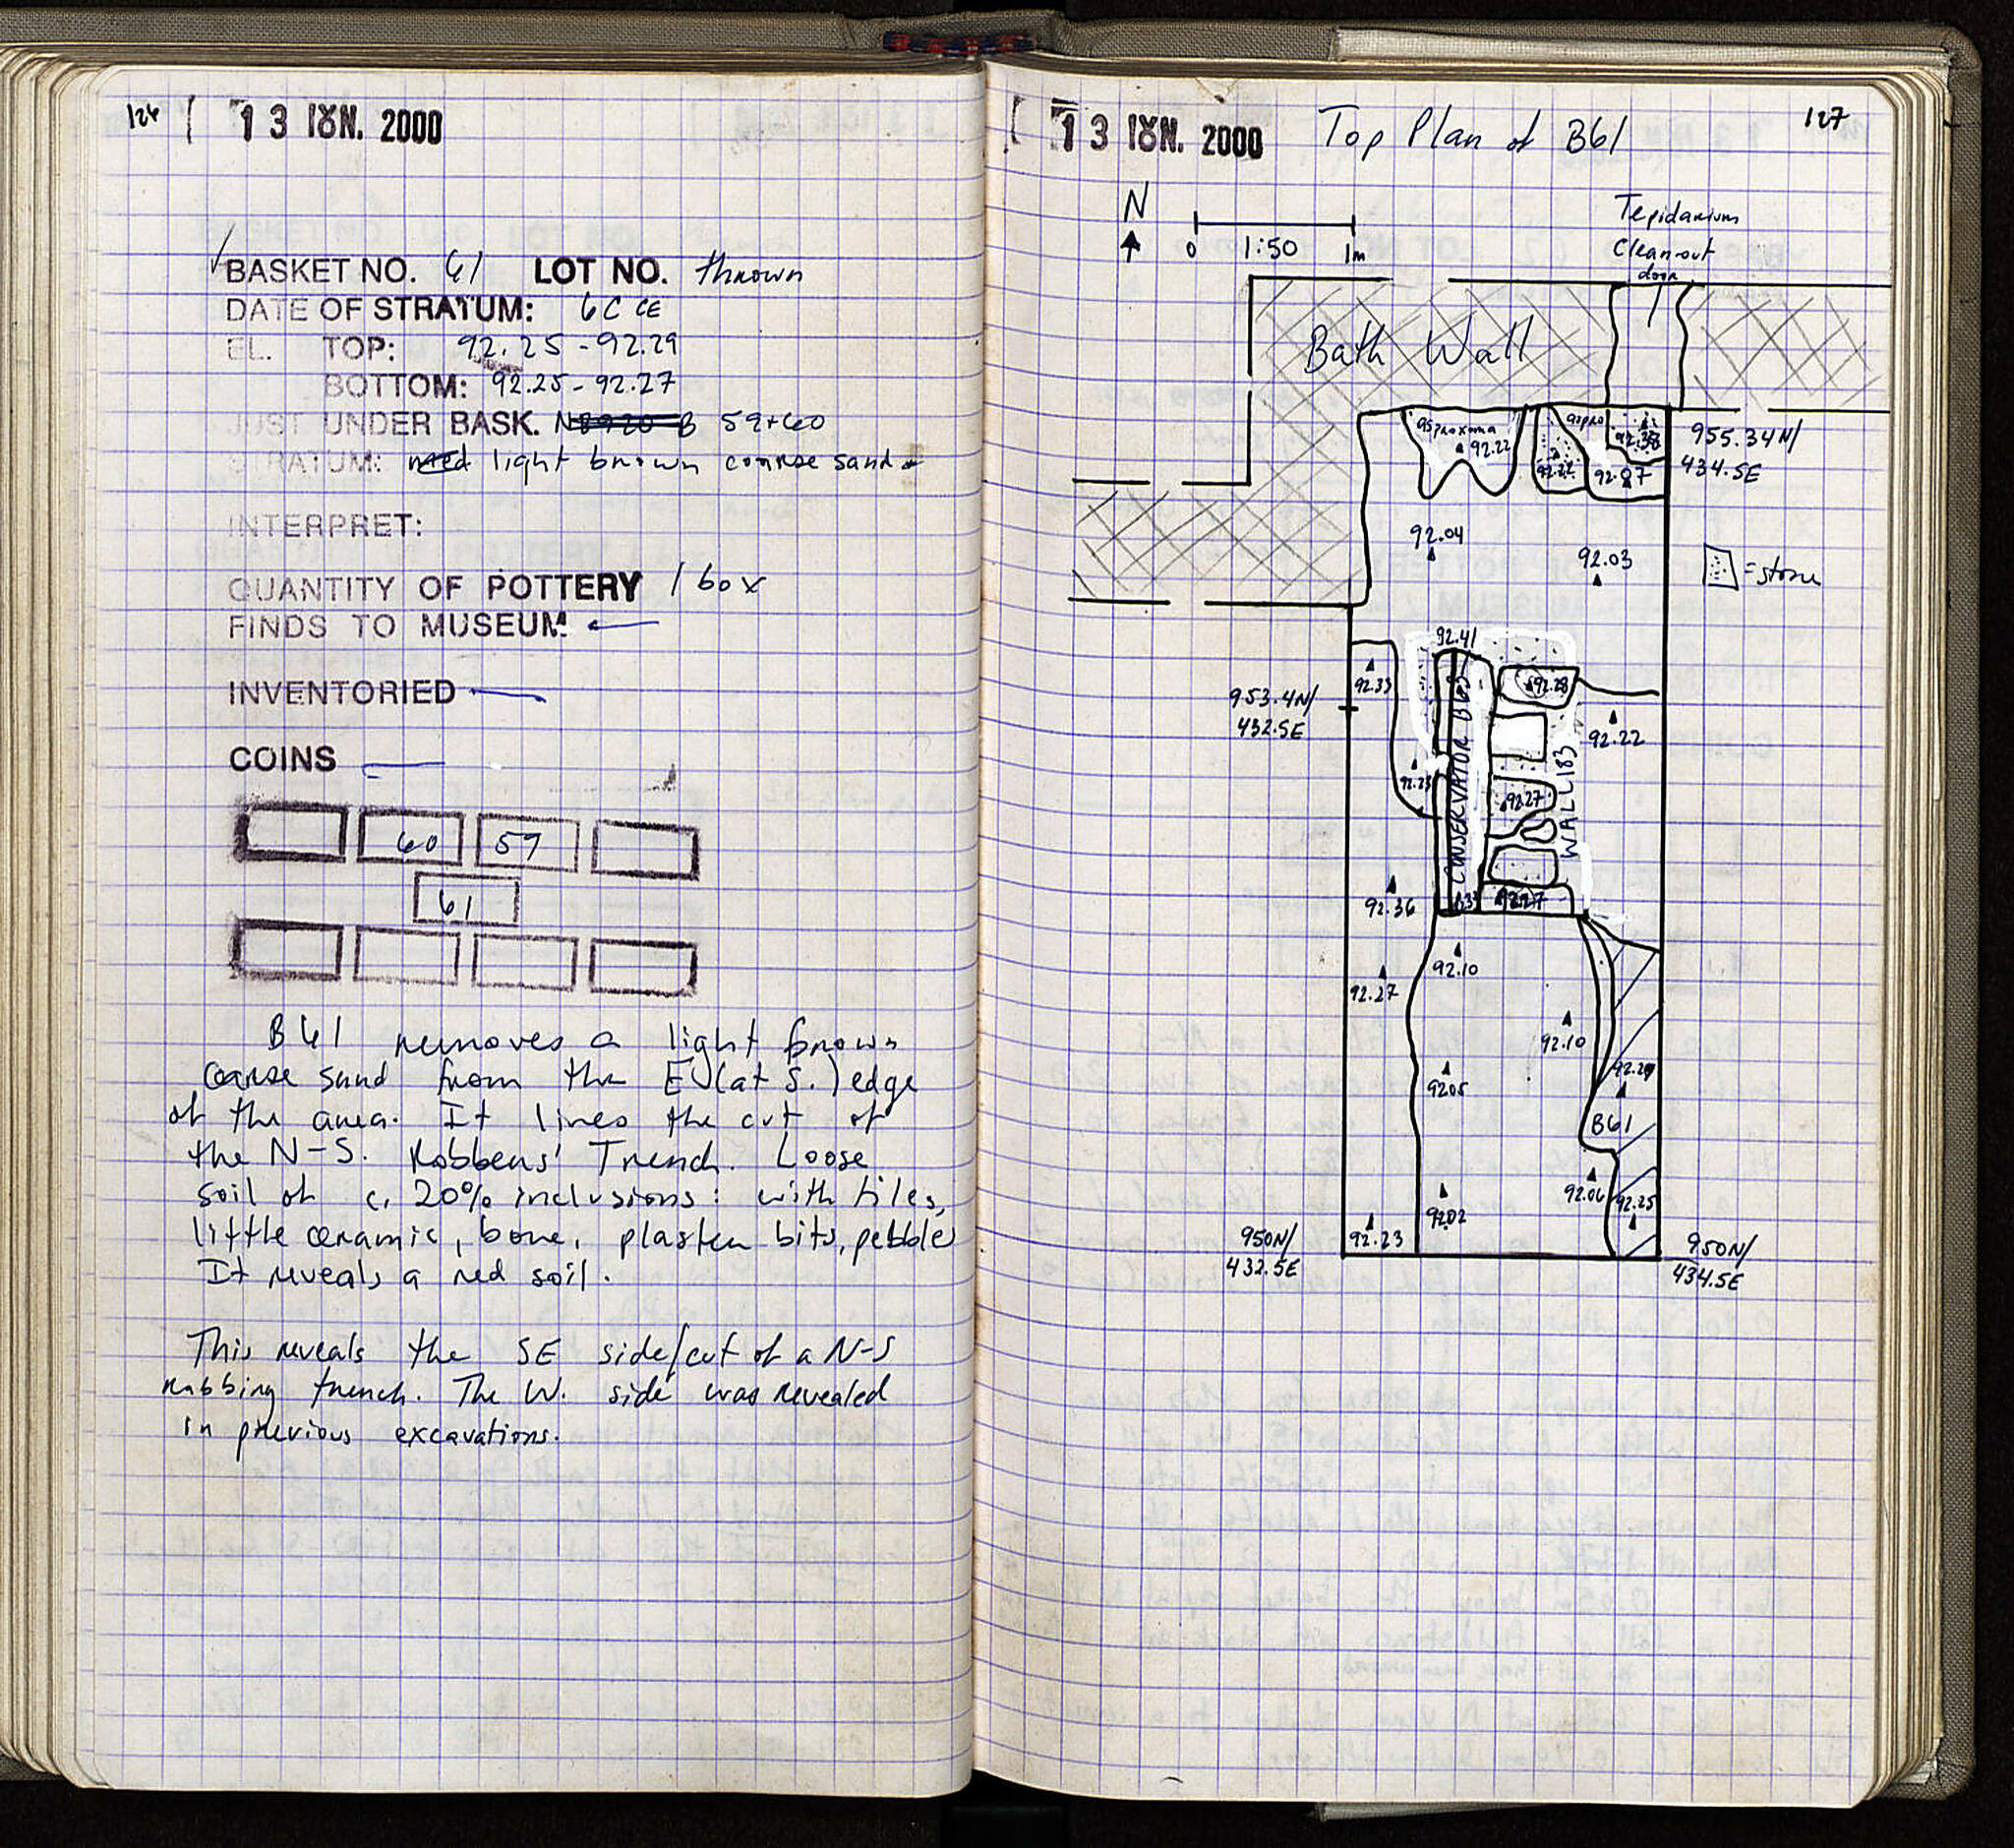 126
13 ΙΟΥΝ. 2000
BASKET NO. 61 LOT NO. thrown
DATE OF STRATUM: 6C CE
EL. TOP: 92.25-92.29
BOTTOM: 92.25-92.27
JUST UNDER BASK. B 59+60
STRATUM: light brown coarse sand
INTERPRET:
QUANTITY OF POTTERY 1 box
FINDS TO MUSEUM
INVENTORIED
COINS
60 59
61
B61 removes a light brown
coarse sand from the E (at S.) edge
of the area. It lines the cut of
the N-S. Robbers' Trench. Loose
soil of c. 20% inclusions: with tiles,
little ceramic, bone, plaster bits, pebbles
It reveals a red soil.
This reveals the SE side/cut of a N-S
robbing trench. The W. side was revealed
in previous excavations.
13 ΙΟΥΝ. 2000 Top Plan of B61
127
N
0 1:50 1m
Tepidarium
Cleanout
door
Bath Wall
asproxoma
92.22
aspro
92.22
92.87
955.34N/
434.5E
92.04
92.03
=stone
92.41
92.33
92.28
953.4N/
432.5E
92.22
92.25
CONSERVATOR B63
92.27
WALL 183
92.36
92.27
92.10
92.27
92.10
92.29
92.05
B61
92.06
92.25
92.02
92.23
950N/
432.5E
950N/
434.5E